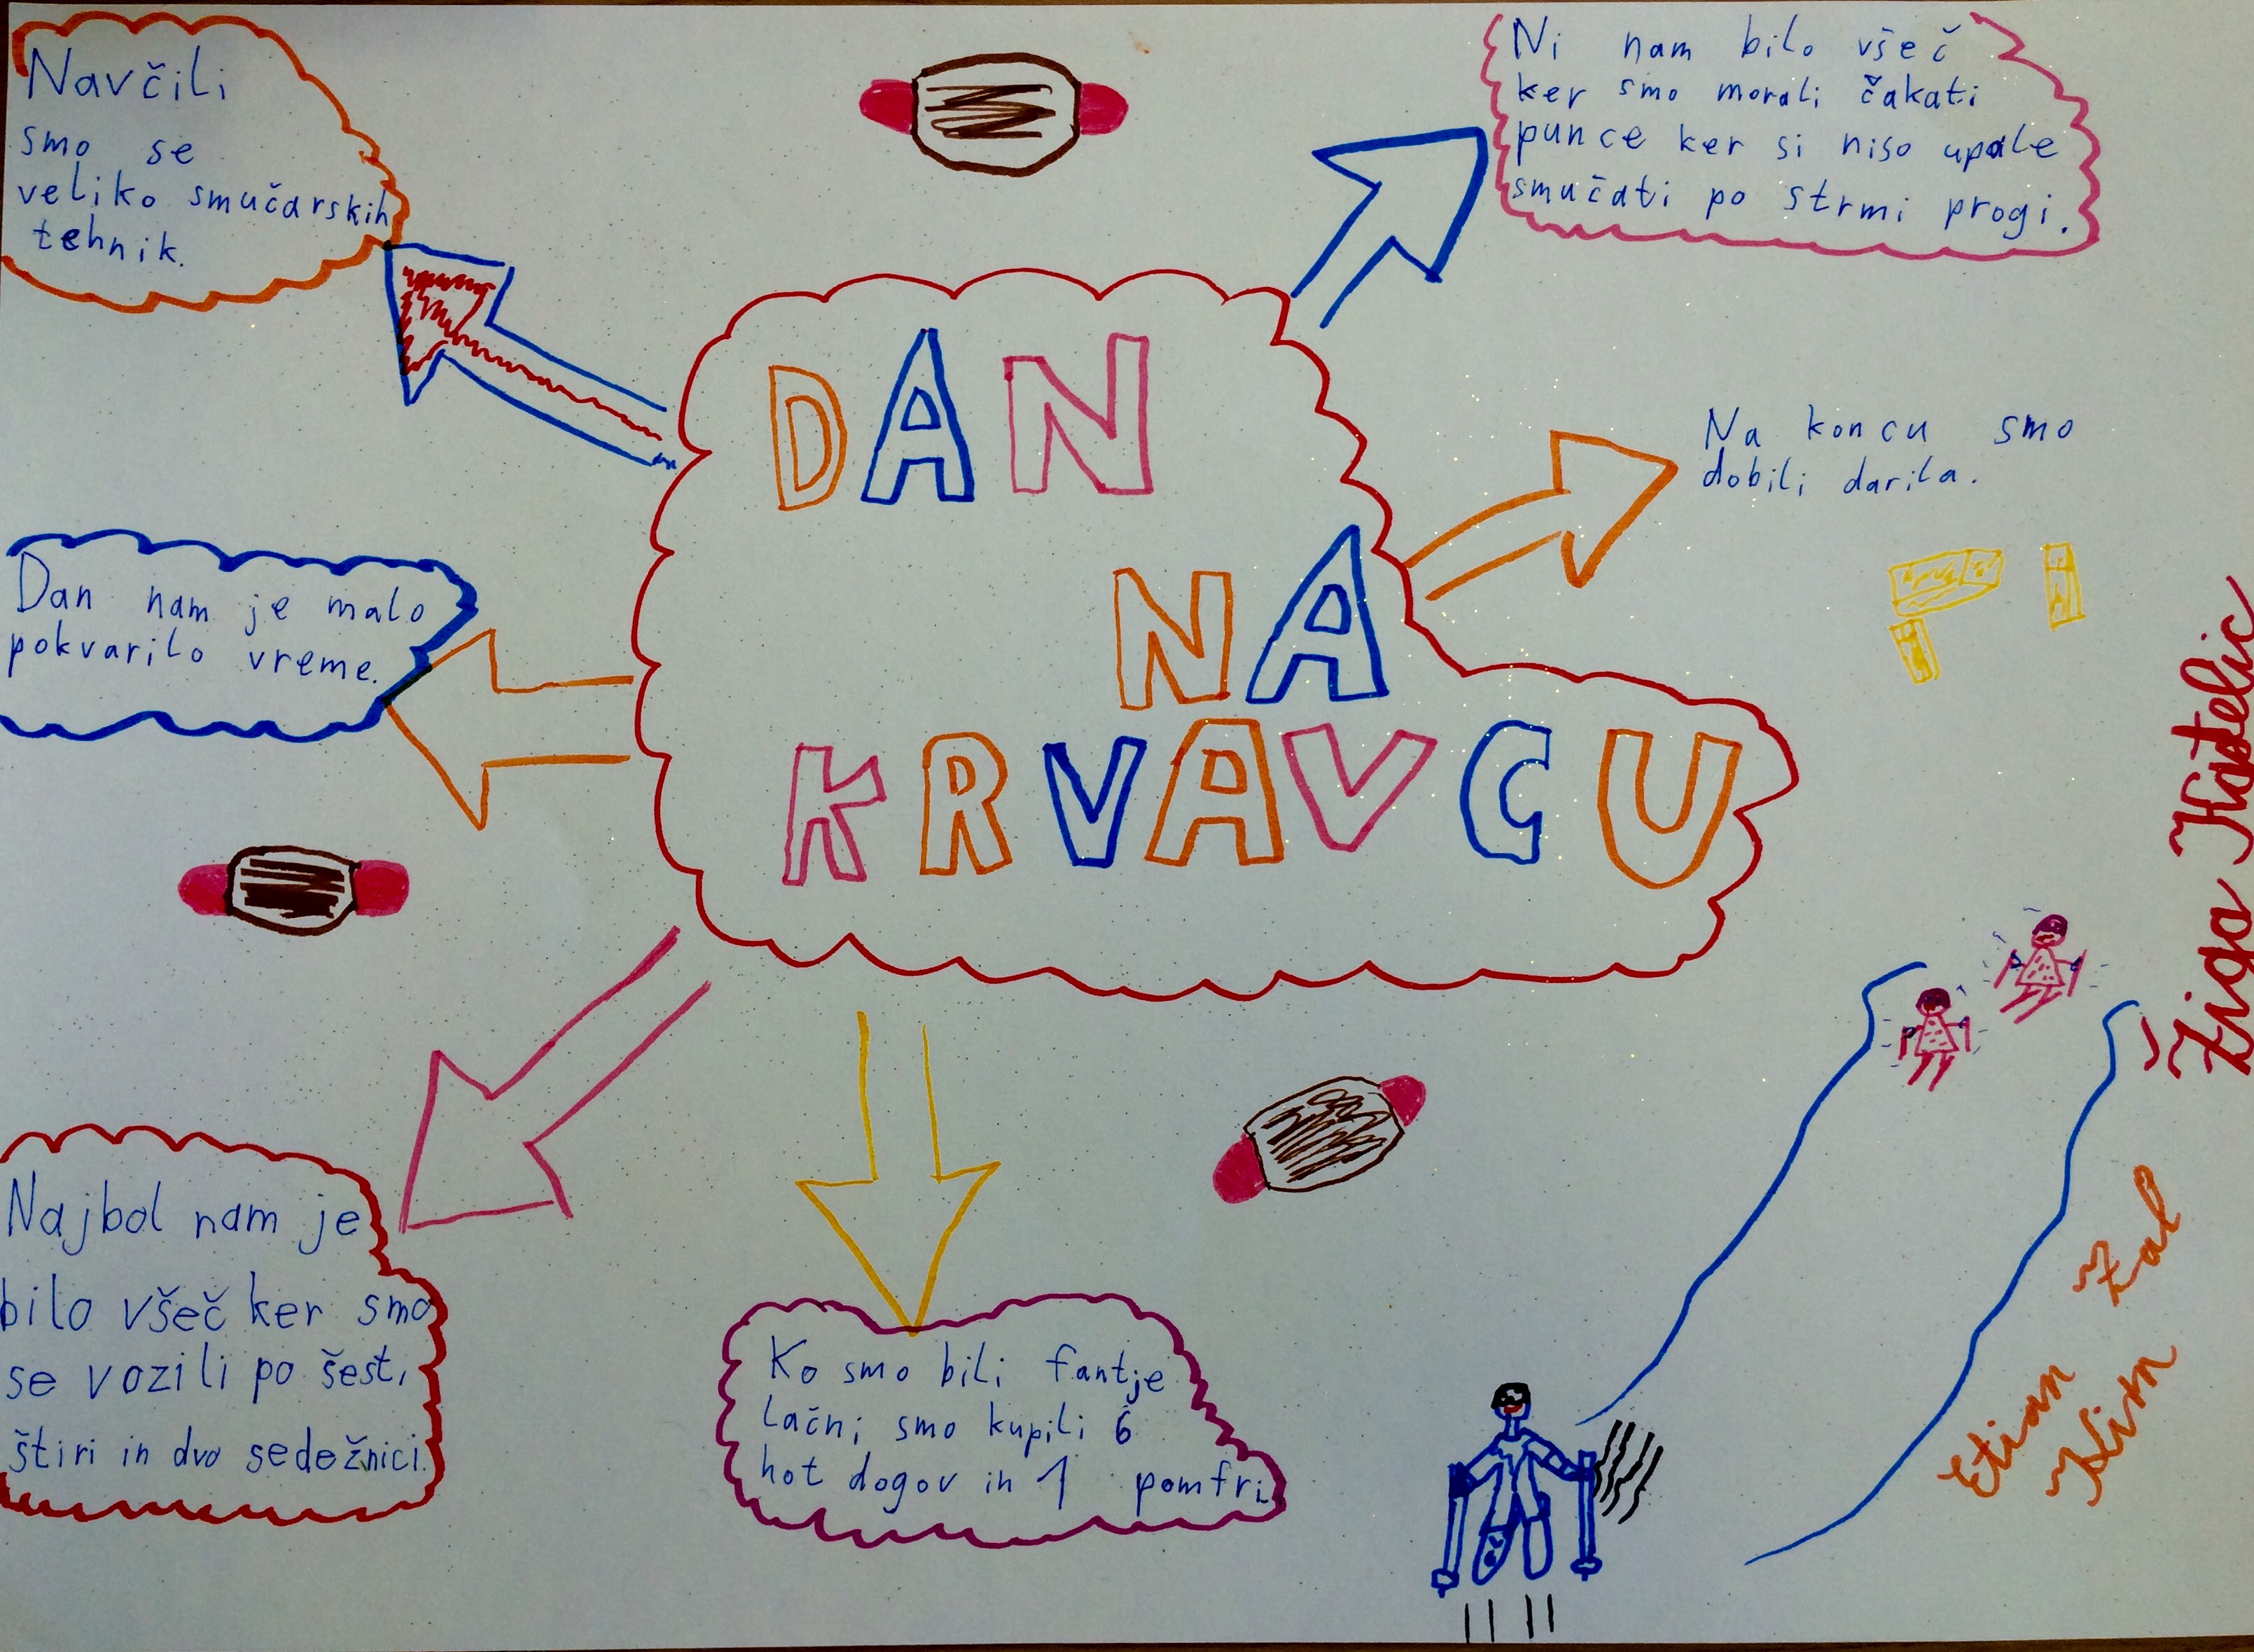 Navčili
smo se
veliko smučarskih
tehnik.
Ni nam bilo všeč
ker smo morali čakati
punce ker si niso upale
smučati po strmi progi.
DAN
NA
KRVAVCU
Na koncu smo
dobili darila.
Dan nam je malo
pokvarilo vreme.
Najbol nam je
bilo všeč ker smo
se vozili po šest,
štiri in dvo sedežnici.
Ko smo bili fantje
lačni smo kupili 6
hot dogov in 1 pomfri
Žiga Kastelic
Žal
Etian
Klim